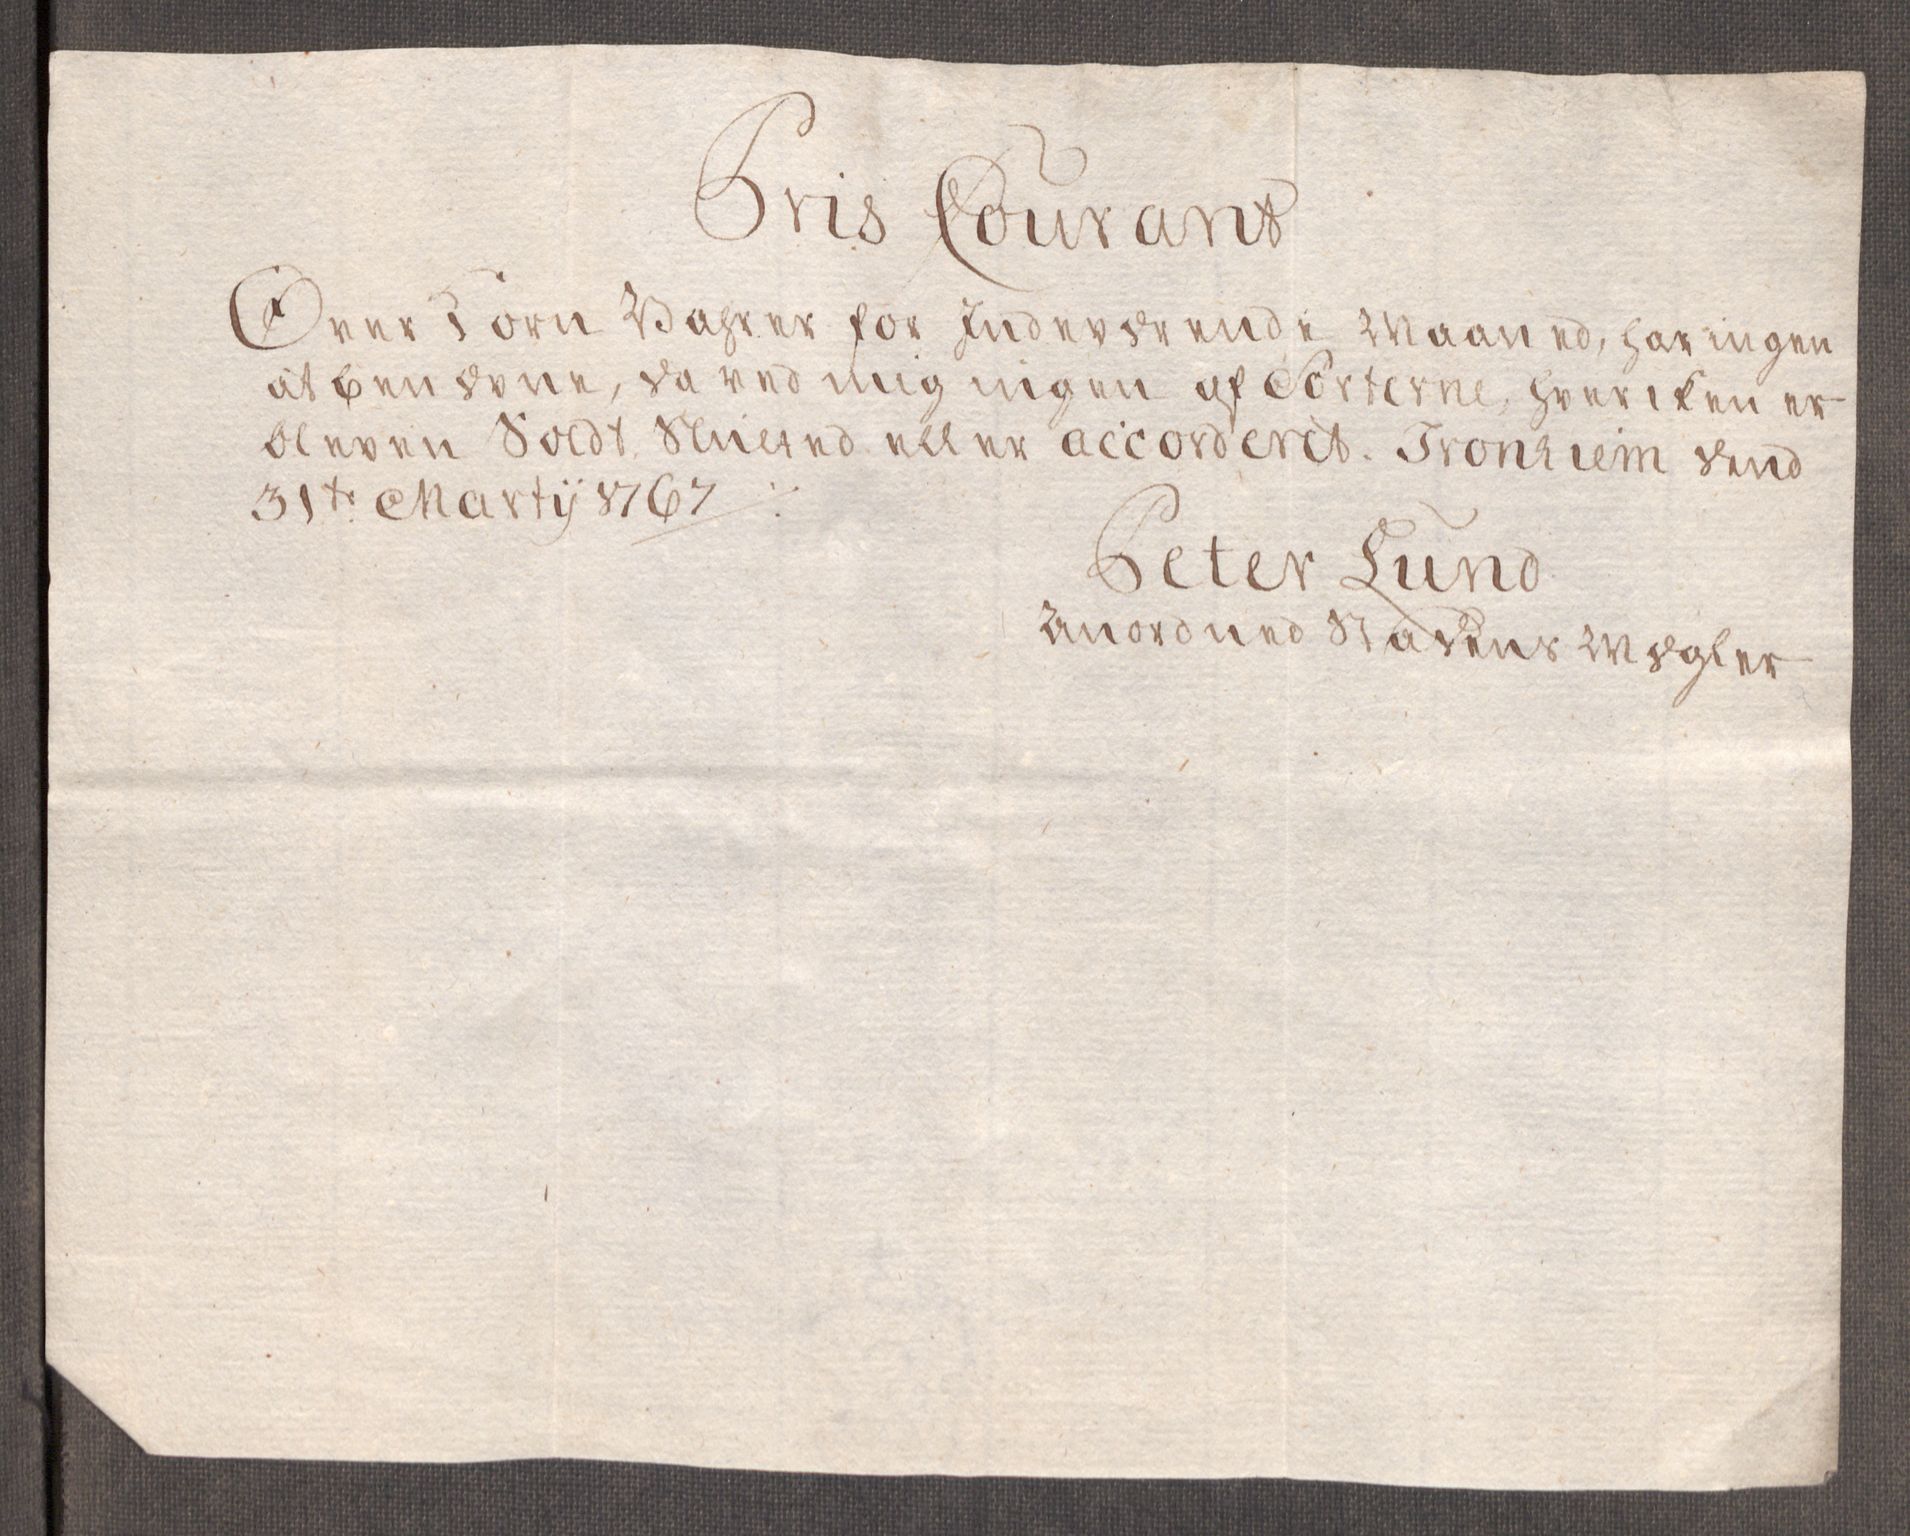 Pris Courant
Over Korn Vahrer for Indeværende Maaned, har ingen
at benævne, da ved mig ingen af Sorterne, hverken er
bleven Soldt Slutted eller accorderet. Tronhiem dend
31te Martij 1767
Peter Lund
Anordned Stadens Mægler